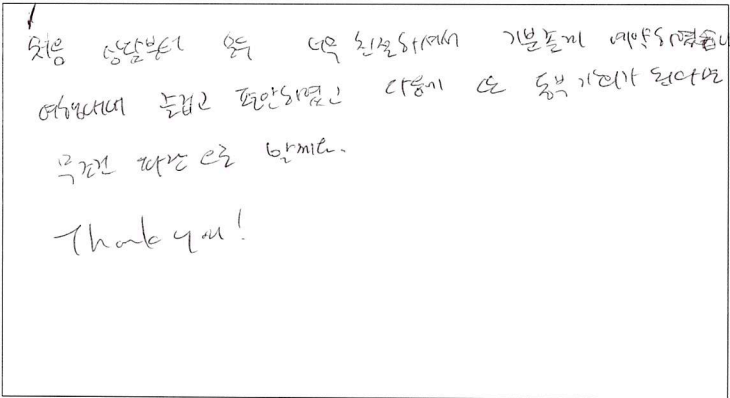 처음 상담부터 모두 너무 친절하셔서 기분좋게 예약하였습니
여행내내 즐겁고 편안하였고 다음에 또 동부 기회가 된다면
무조건 따란으로 할께요.
Thank you!